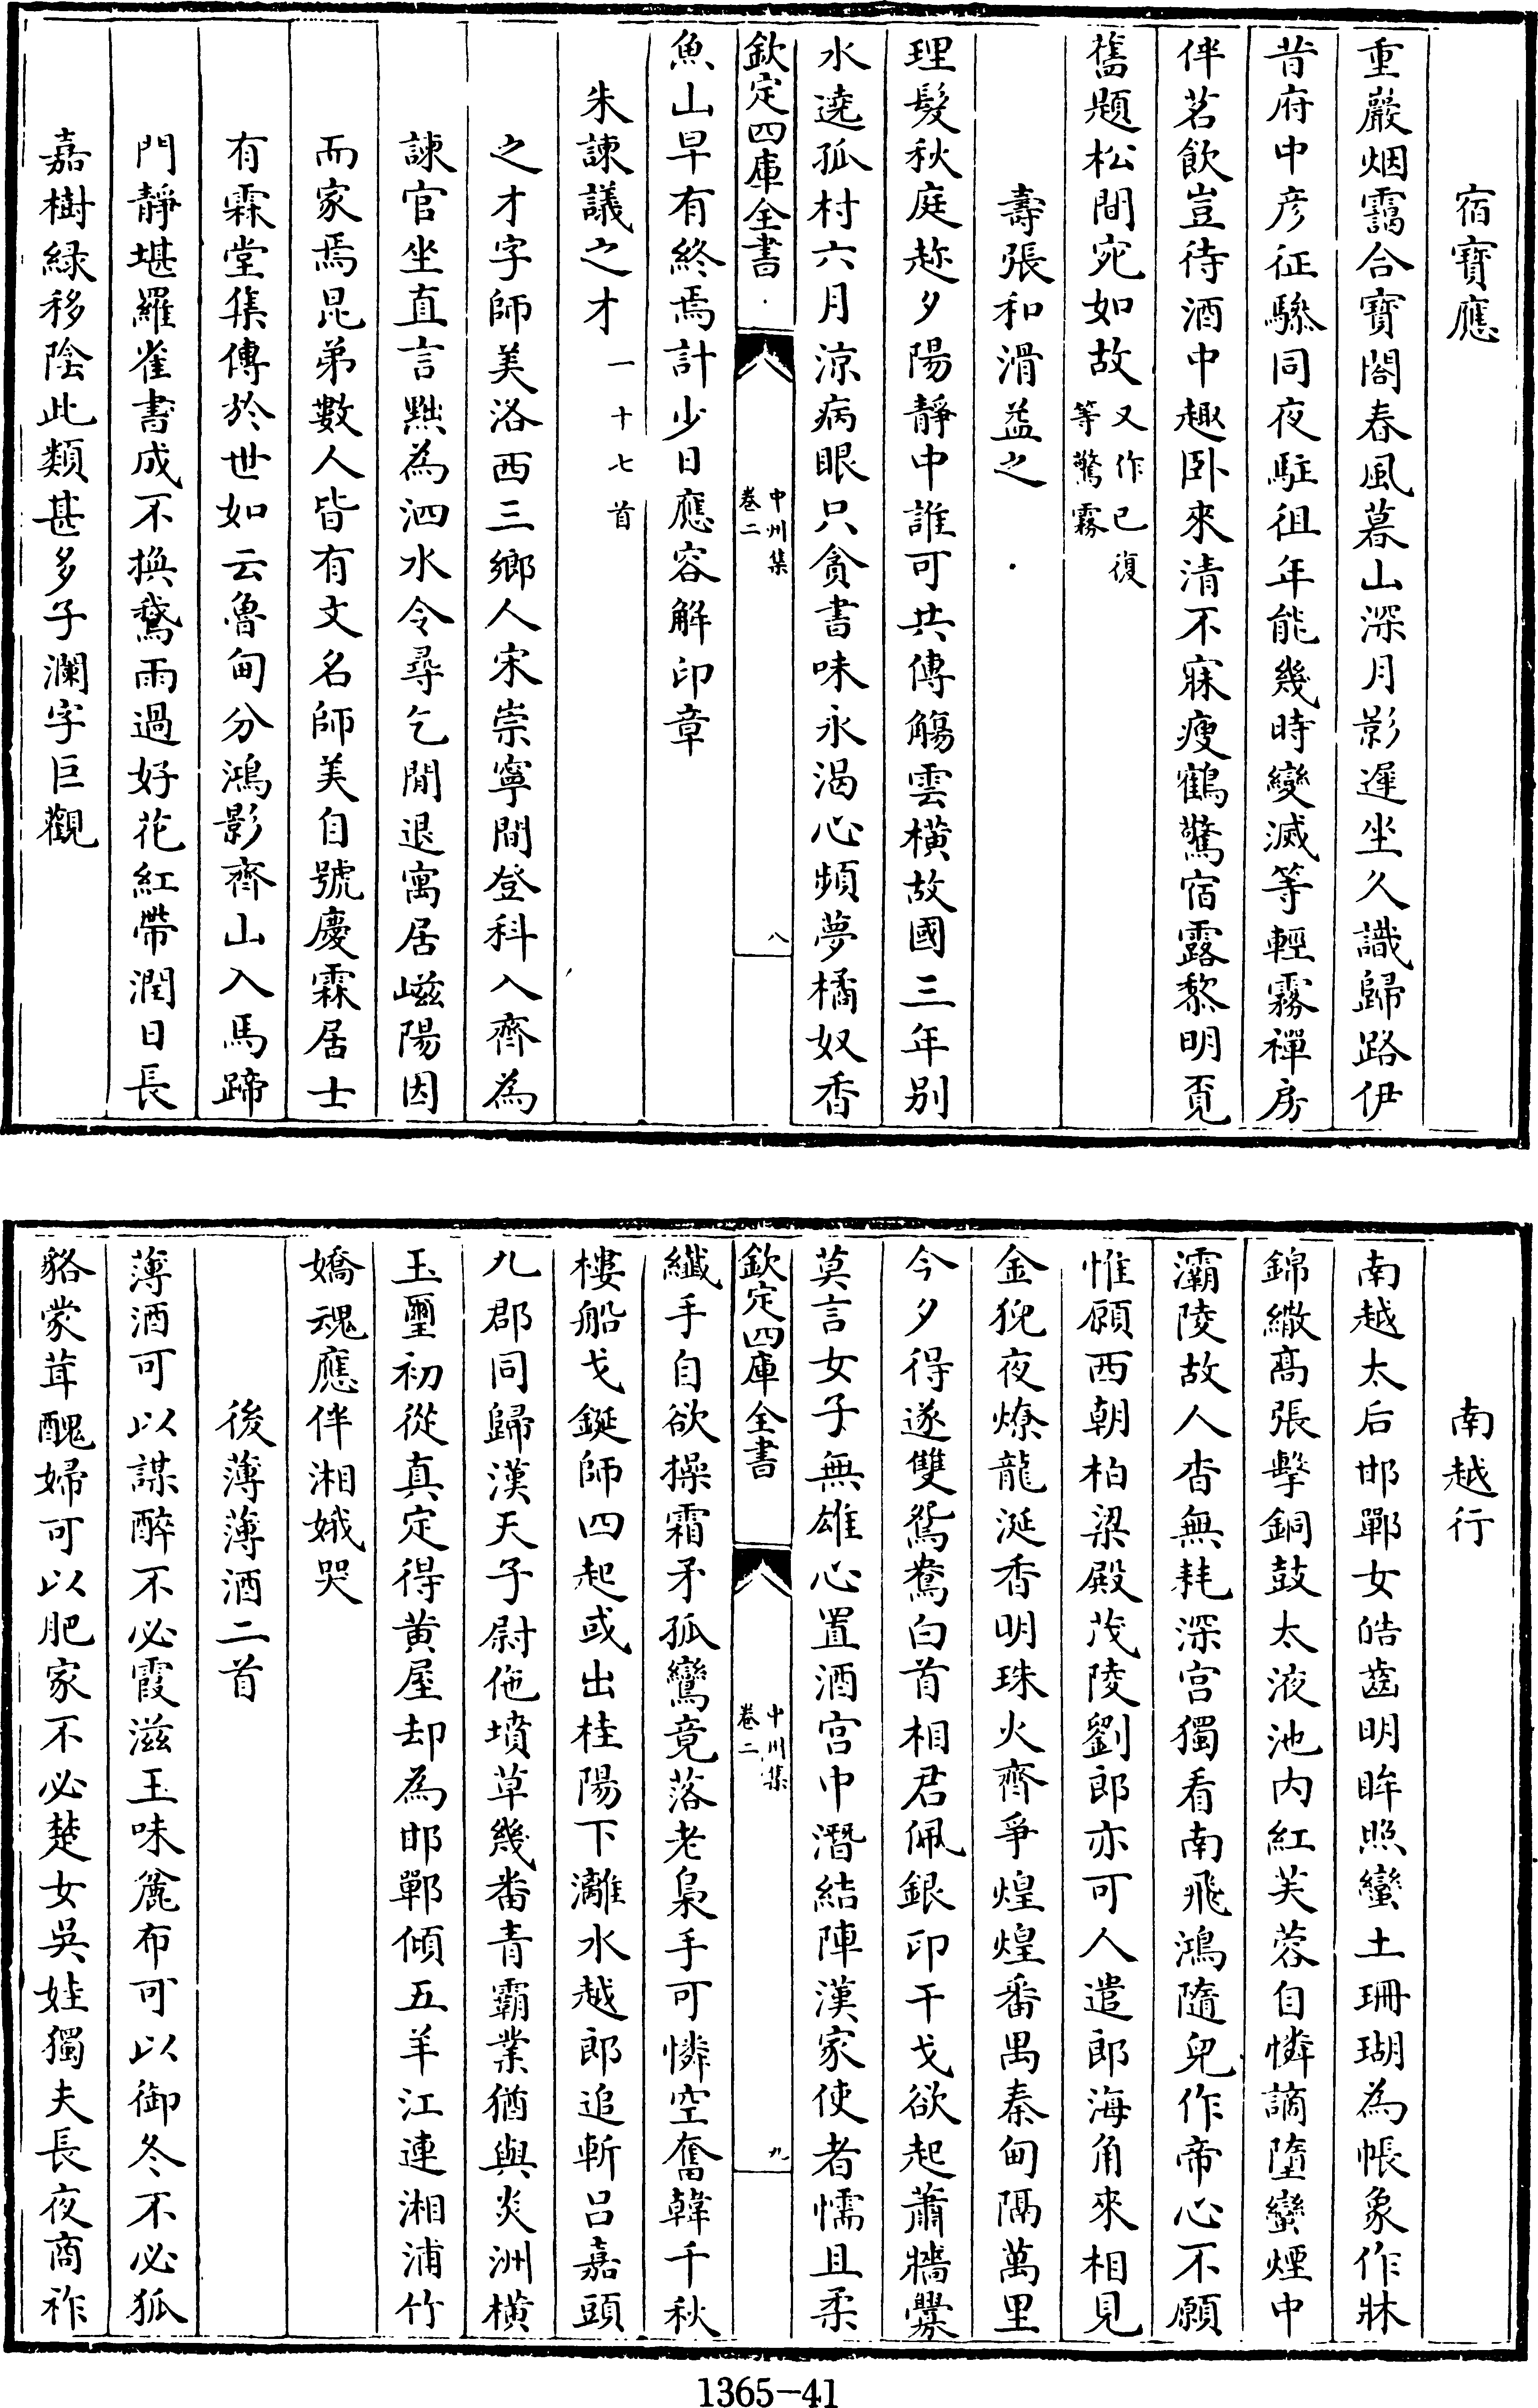 宿寳應
重巖烟靄合寳閣春風暮山深月影遲坐久識歸路伊
昔府中彦征驂同夜駐徂年能幾時變滅等輕霧禪房
伴茗飲豈待酒中趣卧來清不寐瘦鶴驚宿露黎明覓
舊題松間宛如故又作已復等驚霧
壽張和滑益之
理髮秋庭趂夕陽靜中誰可共傳觴雲横故國三年别
水遶孤村六月涼病眼只貪書味永渴心頻夢橘奴香
欽定四庫全書
中州集
卷二
八
魚山早有終焉計少日應容解印章
朱諫議之才一十七首
之才字師美洛西三鄉人宋崇寧間登科入齊為
諫官坐直言黜為泗水令尋乞閒退寓居嵫陽因
而家焉昆弟數人皆有文名師美自號慶霖居士
有霖堂集傳於世如云魯甸分鴻影齊山入馬蹄
門靜堪羅雀書成不换鵞雨過好花紅帶潤日長
嘉樹緑移陰此類甚多子瀾字巨觀
南越行
南越太后邯鄲女皓齒明眸照蠻土珊瑚為帳象作牀
錦繖髙張擊銅鼓太液池内紅芙蓉自憐謫墮蠻煙中
灞陵故人杳無耗深宫獨看南飛鴻隨兒作帝心不願
惟願西朝柏梁殿茂陵劉郎亦可人遣郎海角來相見
金猊夜燎龍涎香明珠火齊爭煌煌番禺秦甸隔萬里
今夕得遂雙鴛鴦白首相君佩銀印干戈欲起蕭牆釁
莫言女子無雄心置酒宫中潛結陣漢家使者懦且柔
欽定四庫全書
中州集
卷二
九
纎手自欲操霜矛孤鸞竟落老梟手可憐空奮韓千秋
樓船戈鋋師四起或出桂陽下灕水越郎追斬吕嘉頭
九郡同歸漢天子尉佗墳草幾番青霸業猶與炎洲横
玉璽初從真定得黄屋却為邯鄲傾五羊江連湘浦竹
嬌魂應伴湘娥哭
後薄薄酒二首
薄酒可以謀醉不必霞滋玉味麄布可以御冬不必狐
貉蒙茸醜婦可以肥家不必楚女吳娃獨夫長夜商祚
1365-41